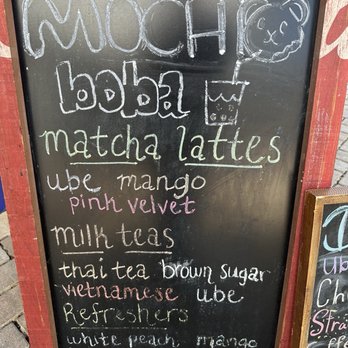 MOCHI
boba
matcha lattes
ube mango
pink velvet
milk teas
thai tea brown sugar
vietnamese ube
Refreshers
white peach, mango